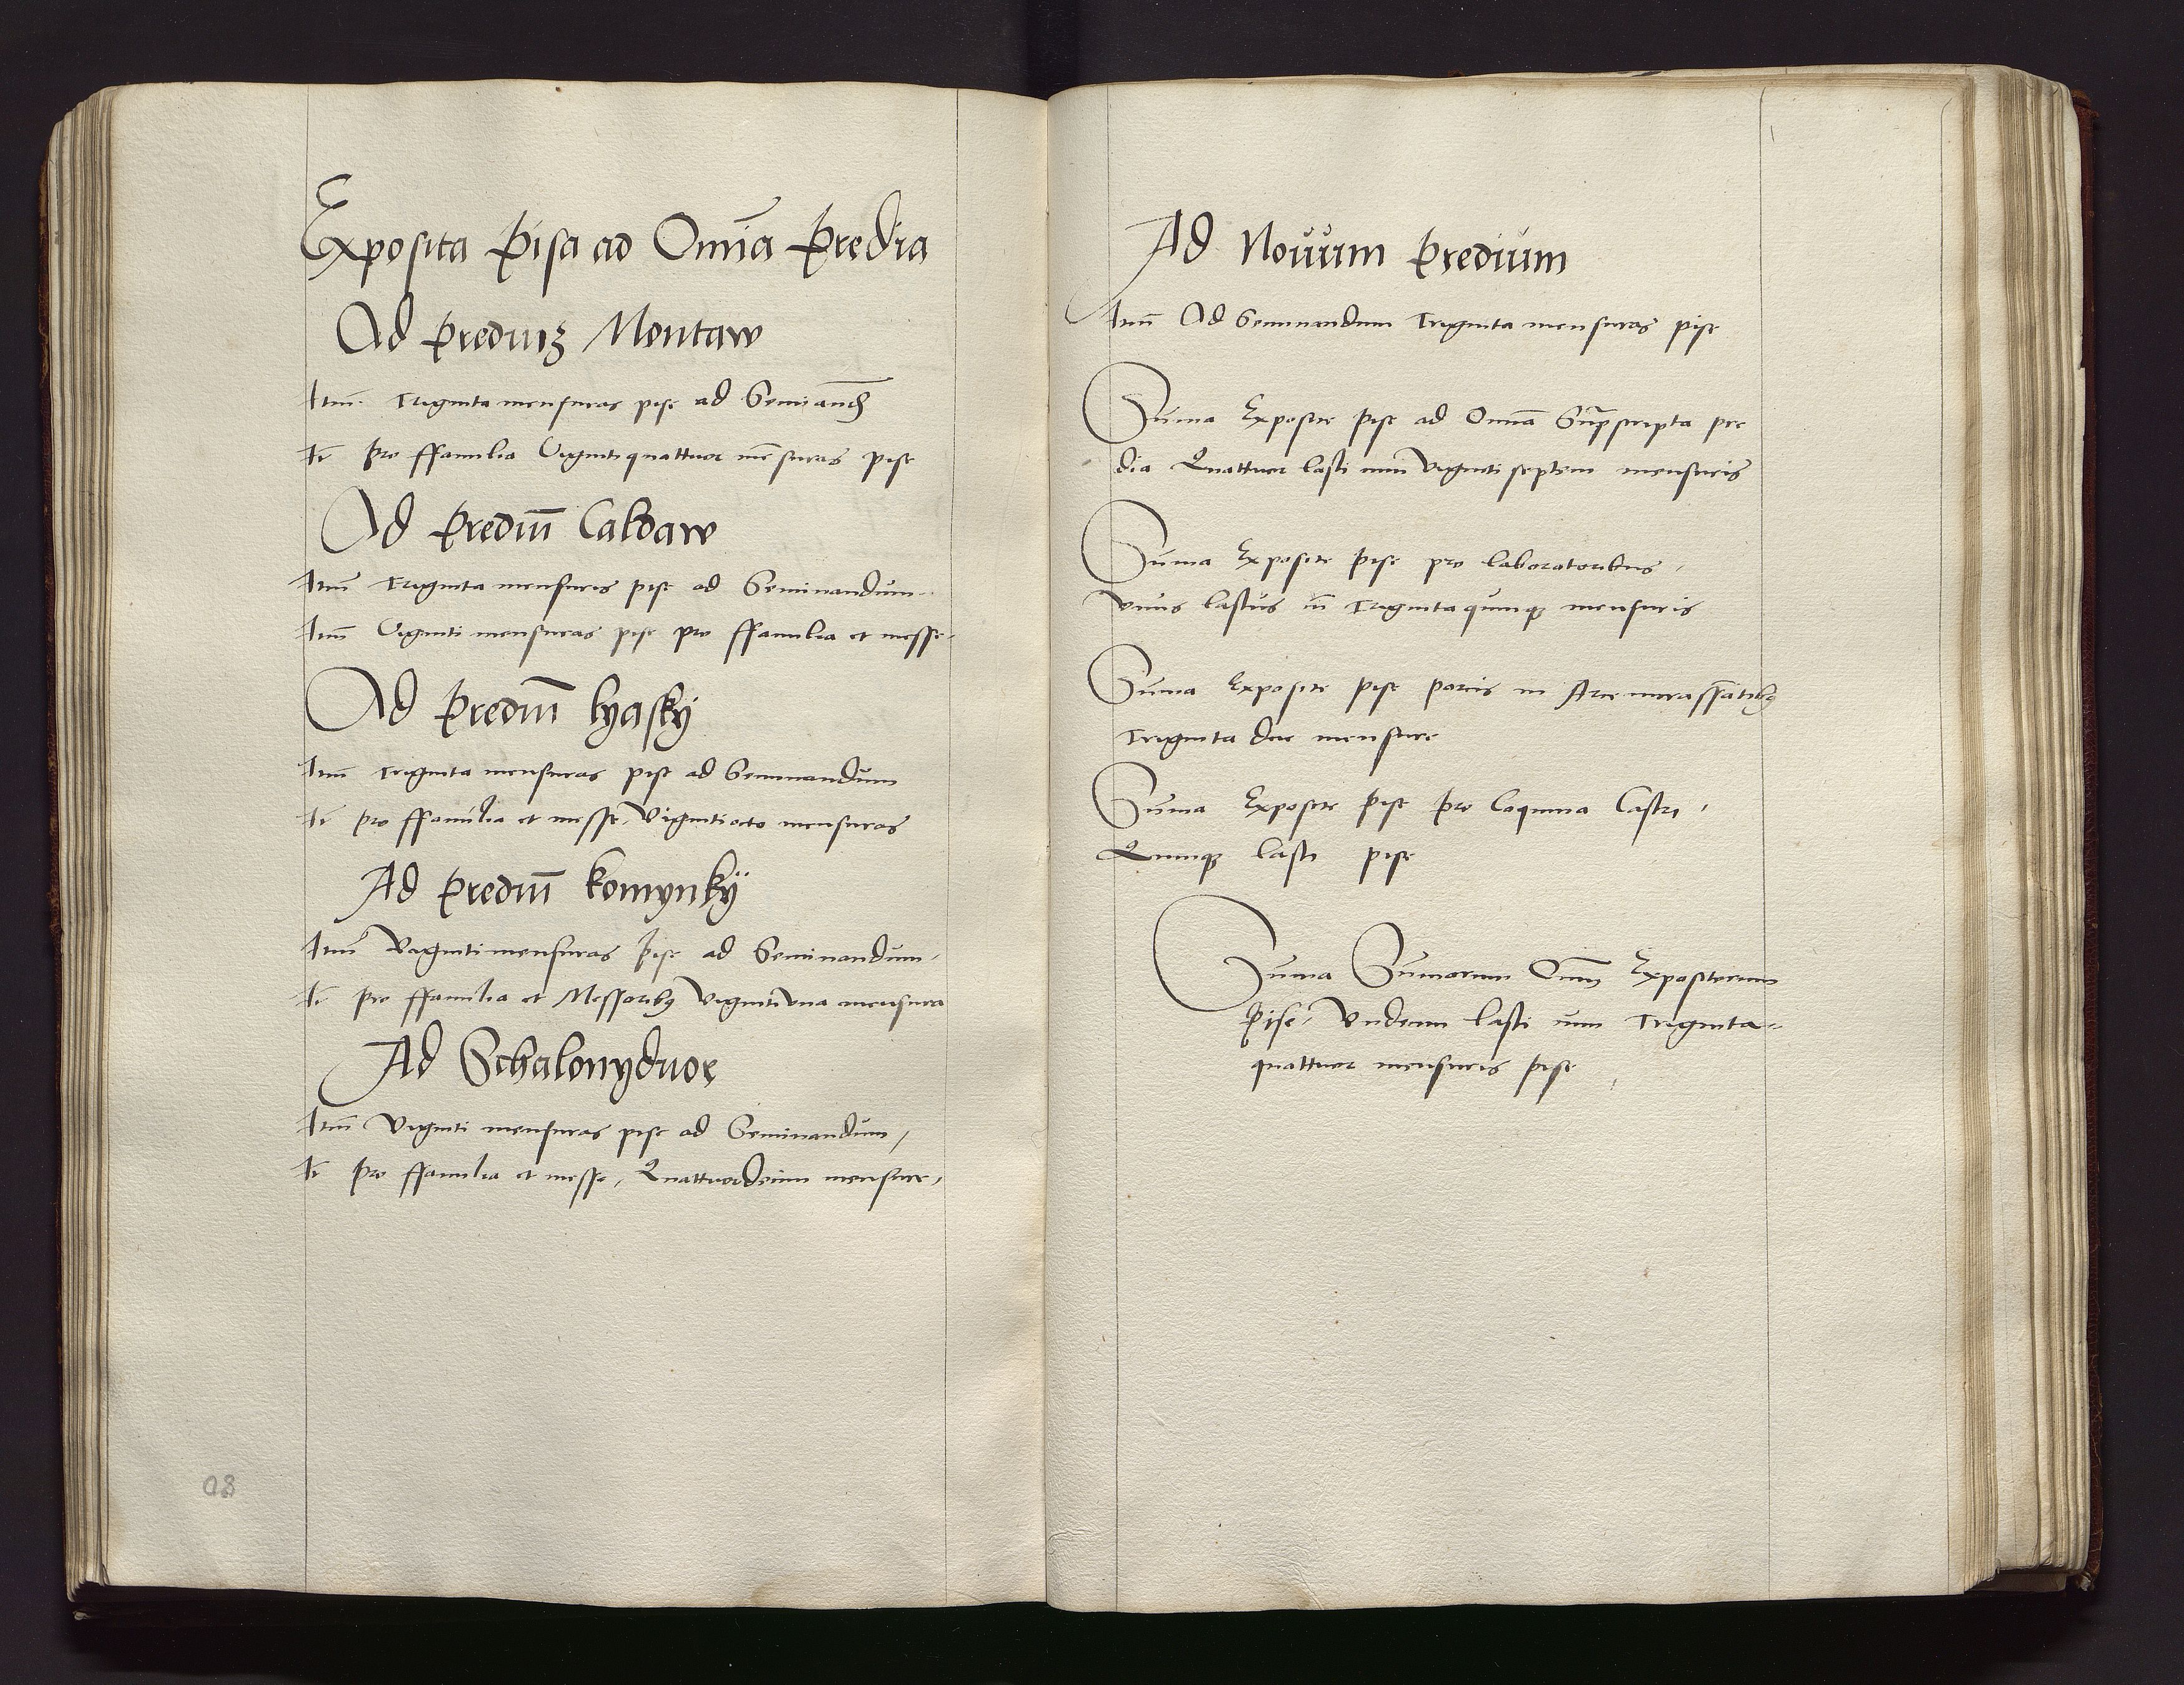 Exposita Pisa ad Omīa Predia
Ad Prediuȝ Montaw
Itm̄ Triginta mensuras pise ad Semīand
It̄ pro ffamilia Vigintiquattuor mēsuras pise
Ad Prediū Caldaw
Itm̄ Triginta mensuris pise ad Seminandum
Itm̄ Viginti mensuras pise pro ffamilia et messe
Ad Prediū lyasky
Itm̄ triginta mensuras pise ad Seminandum
It̄ pro ffamilia et messe Vigintiocto mensuras
Ad Prediū komynkÿ
Itm̄ Vigintimensuras Pise ad Seminandum
It̄ pro ffamilia et Messoribꝫ Vigintivna mensura
Ad Schalonyduor
Itm̄ Viginti mensuras pise ad Seminandum,
It̄ pro ffamilia et messe, Quattuordecim mensure,
08
Ad Nouum Predium
Itm̄ Ad Seminandum Triginta mensuras pise
Suma Exposite pise ad Omīa Supscripta pre
dia Quattuor lasti cum vigintiseptem mensuris
Suma Exposite Pise pro laboratoribus,
vnus lastus cū Trigintaquinqꝫ mensuris
Suma Exposite pise porcis in Arce incrassātibꝫ
Triginta due mensure
Suma Exposite Pise Pro Coquina Castri,
Quinqꝫ lasti pise
Suma Sumarum Oīm Expositorum
Pise, Vndecim lasti cum Triginta-
quattuor mensuris pise